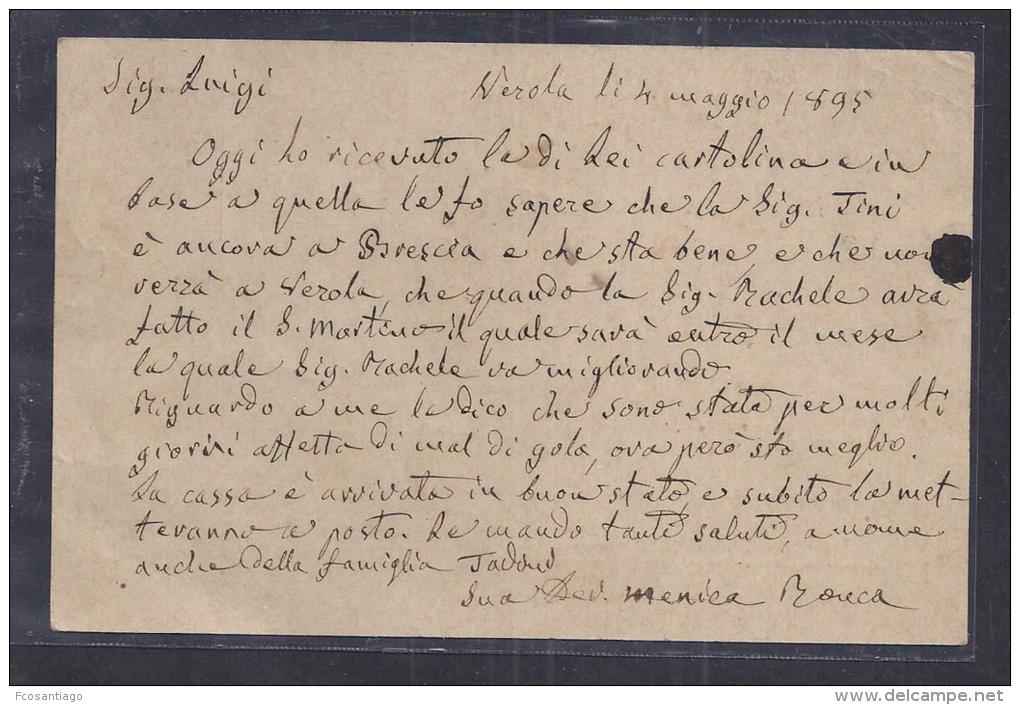 Sig. Luigi
Verola li 4 maggio 1895
Oggi ho ricevuto la di Lei cartolina e in
base a quella le fo sapere che la Sig. Tini
è ancora a Brescia e che sta bene, e che non
verrà a Verola, che quando la Sig. Rachele avrà
fatto il S. Martino il quale sarà entro il mese
la quale Sig. Rachele va migliorando
Riguardo a me la dico che sono stata per molti
giorni affetta di mal di gola, ora però sto meglio.
La cassa è arrivata in buon stato, e subito la met-
teranno a posto. Le mando tanti saluti, a nome
anche della famiglia Taddini
Sua Dev. menica Ronca
Fcosantiago
www.delcampe.net